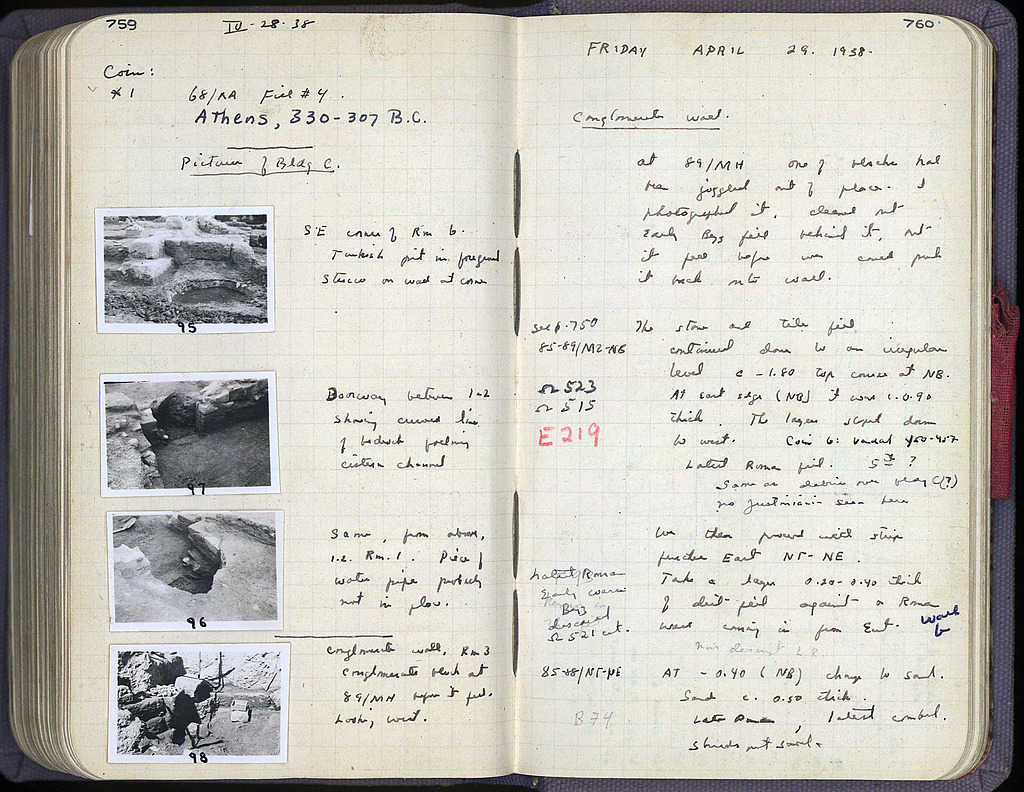 759
IV-28-38
Coin:
*1 68/ΛΑ Fill #4.
Athens, 330-307 B.C.
Pictures of Bldg C.
SE corner of Rm 6.
Turkish pit in foreground
Stucco on wall at corner
95
Doorway between 1-2
showing curved line
of bedrock
cistern channel
97
Same, from above,
1-2. Rm. 1. Piece of
water pipe probably
not in place.
96
Conglomerate wall, Rm 3
conglomerate block at
89/ΜΗ before it fell.
Looking west.
98
760
FRIDAY APRIL 29. 1938.
Conglomerate wall.
at 89/ΜΗ one of blocks had
been joggled out of place. I
photographed it, cleaned out
Early Byz fill behind it, but
it fell before we could push
it back onto wall.
see p. 750
The stone and tile fill
85-89/ΜΖ-ΝΒ
continued down to an irregular
level c -1.80 top course at ΝΒ.
Ω 523
At east edge (ΝΒ) it was 0.90
Ω 515
thick. The layer sloped down
E 219
to west. Coin 6: Vandal 450-457
Latest Roman fill. 5th ?
Same as debris over bldg C(?)
no Justinian seen here
We then proceed with strip
further East ΝΓ-ΝΕ.
Latest Roman
Take a layer 0.20-0.40 thick
Early
Byz
of dirt fill against a Roman
discard
wall coming in from East. Wall
Ω 521 cat.
non descript L.R.
85-88/ΝΓ-ΝΕ
AT -0.40 (ΝΒ) change to sand.
Sand c. 0.50 thick.
B 74
Late Roman, latest combed.
sherds not saved.